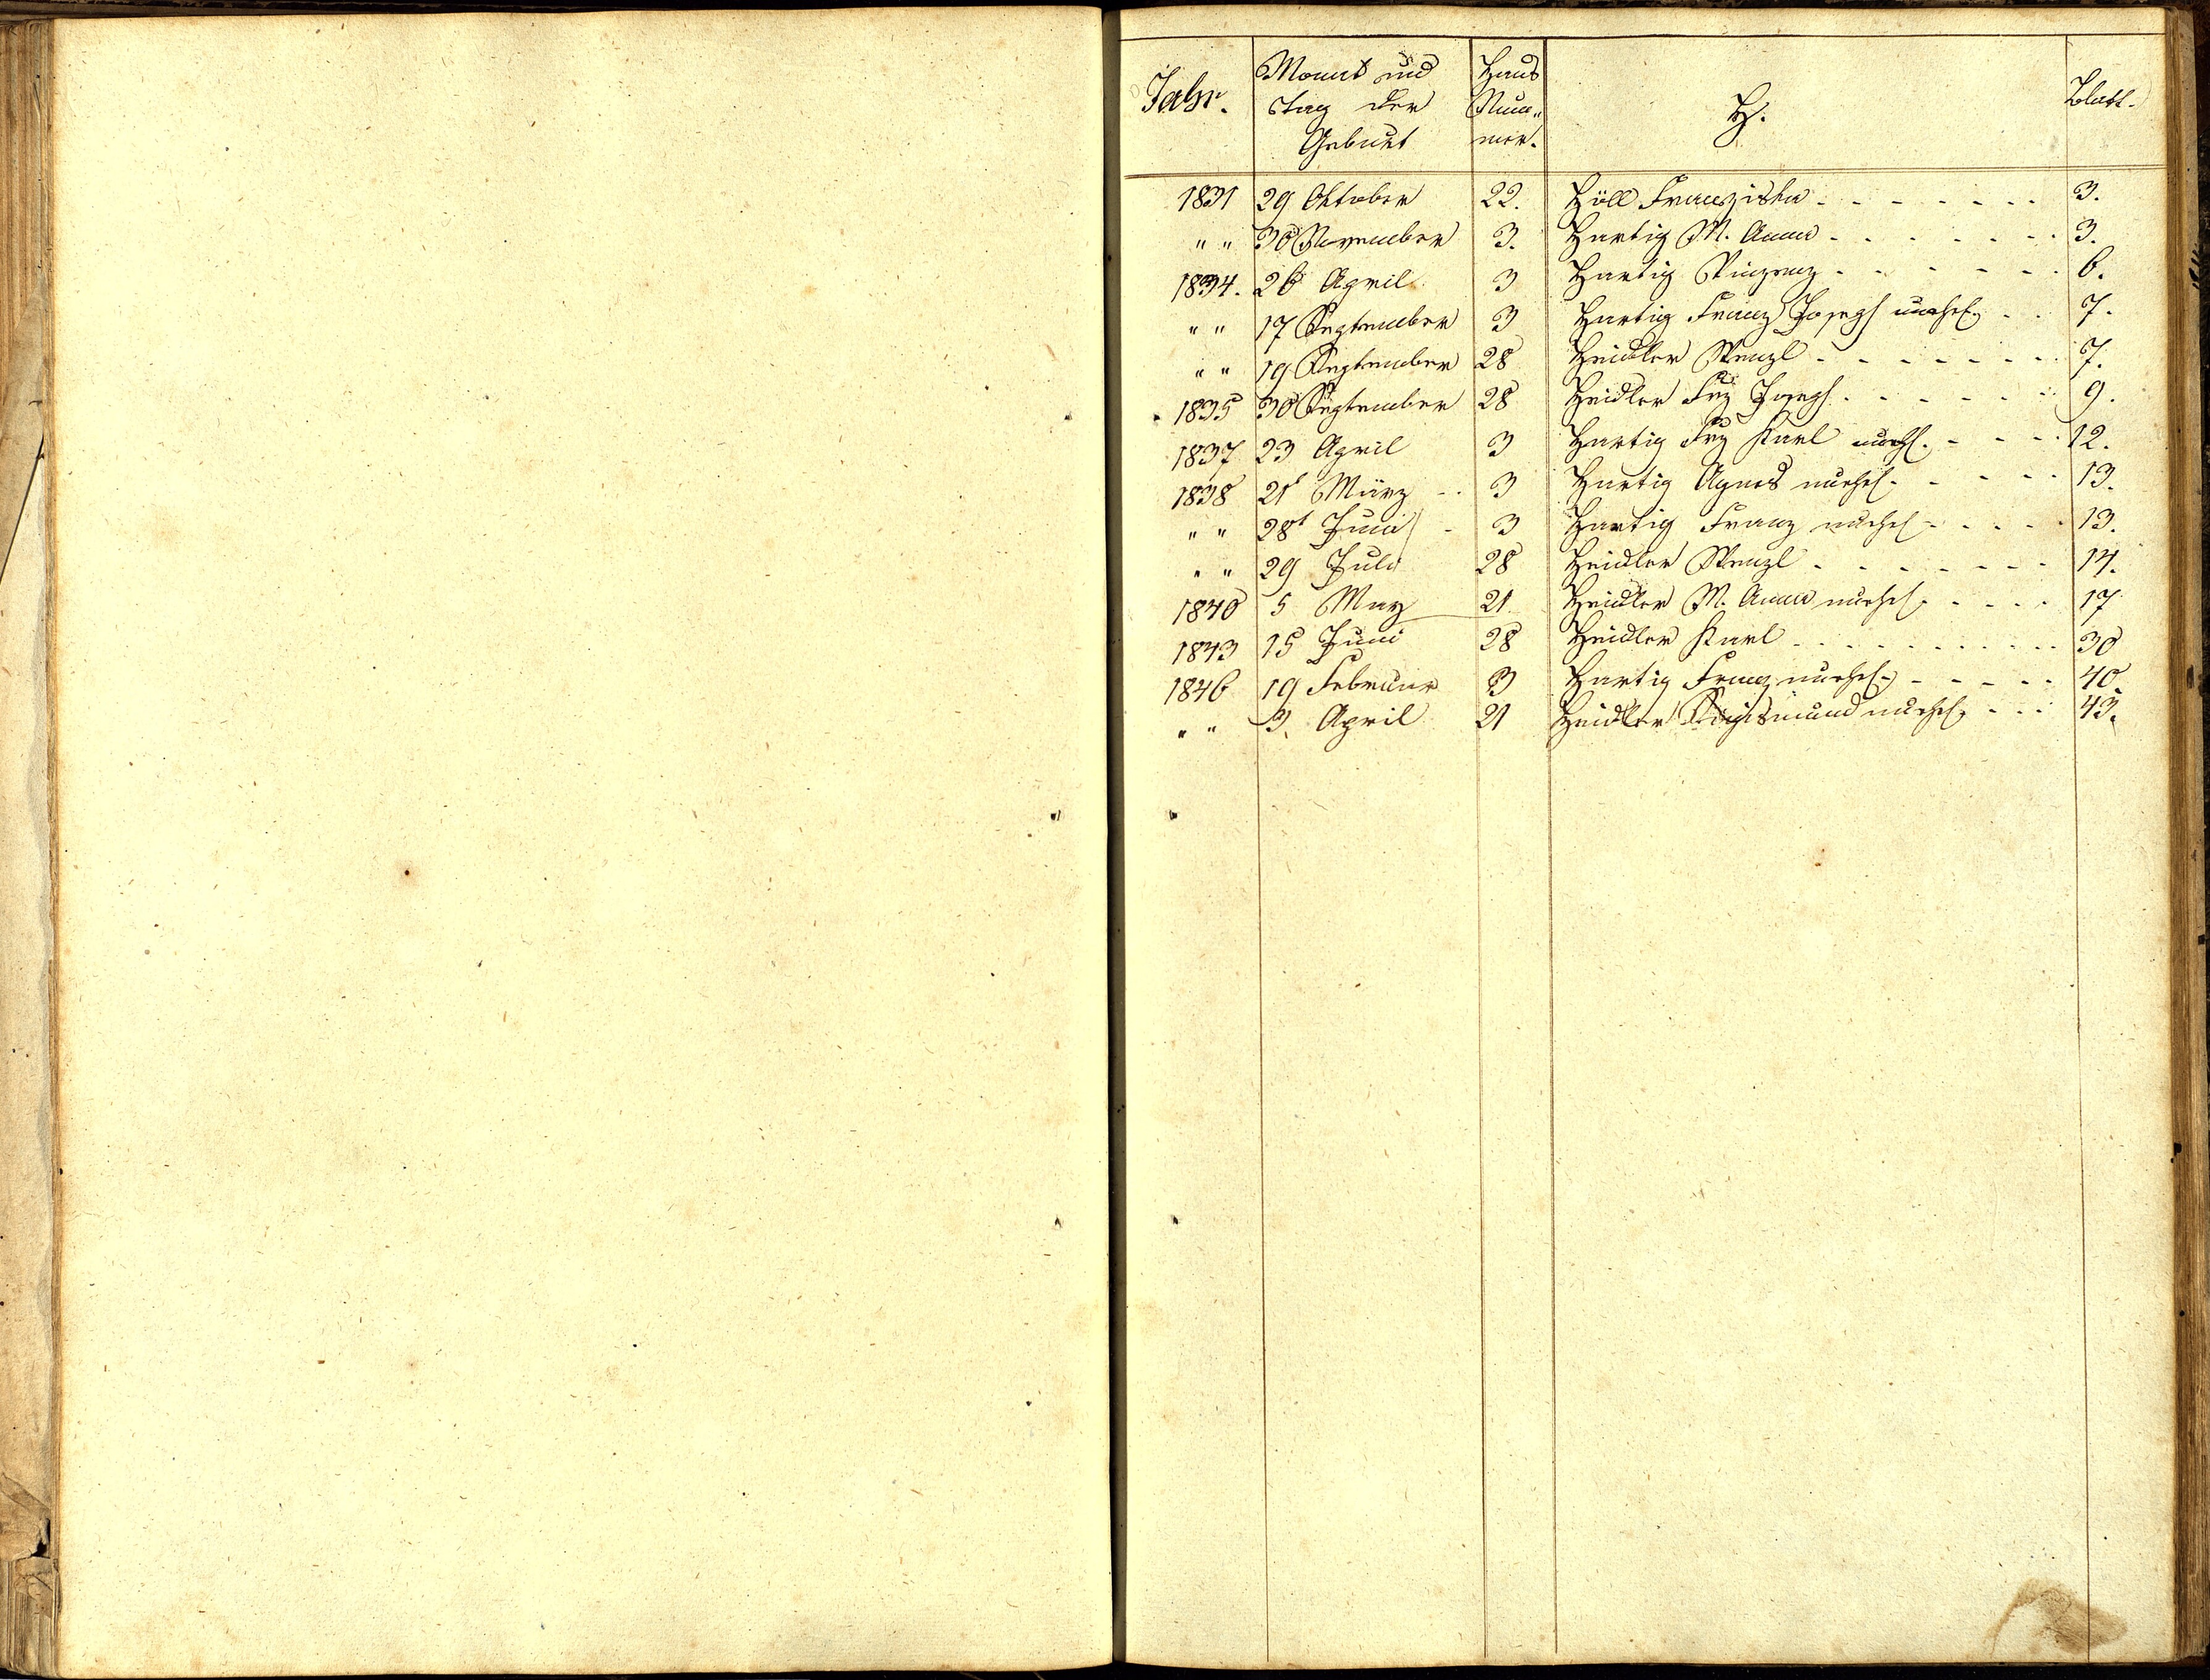 Jahr. Monat und Tag der Geburt Haus Num„mer. H. Blatt.
1831 29 Oktober 22. Höll Franziska 3.
" " 30 November 3. Hartig M. Anna 3.
1834. 26 April 3 Hartig Vinzenz 6.
" " 17 September 3 Hartig Franz Joseph unehel. 7.
" " 19 September 28 Heidler Wenzl 7.
1835 30 September 28 Heidler Frz Joseph 9.
1837 23 April 3 Hartig Frz Karl unehl. 12.
1838 21t März 3 Hartig Agnes unehel. 13.
" " 28t Juni 3 Hartig Franz unehel 13.
" " 29 July 28 Heidler Wenzl 14.
1840 5 May 21 Heidler M. Anna unehel. 17
1843 15 Juni 28 Heidler Karl 30
1846 19 Februar 3 Hartig Franz unehel. 40.
" " 3. April 21 Heidler Sigismund unehel. 43.